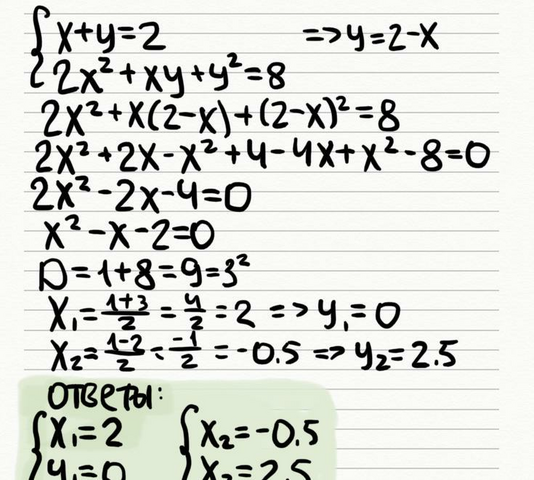 { x+y=2 => y=2-x
{ 2x²+xy+y²=8
2x²+x(2-x)+(2-x)²=8
2x²+2x-x²+4-4x+x²-8=0
2x²-2x-4=0
x²-x-2=0
D=1+8=9=3²
x₁=(1+3)/2=4/2=2 => y₁=0
x₂=(1-2)/2=-1/2=-0.5 => y₂=2.5
ответы:
{ x₁=2 { x₂=-0.5
{ y₁=0 { x₂=2.5